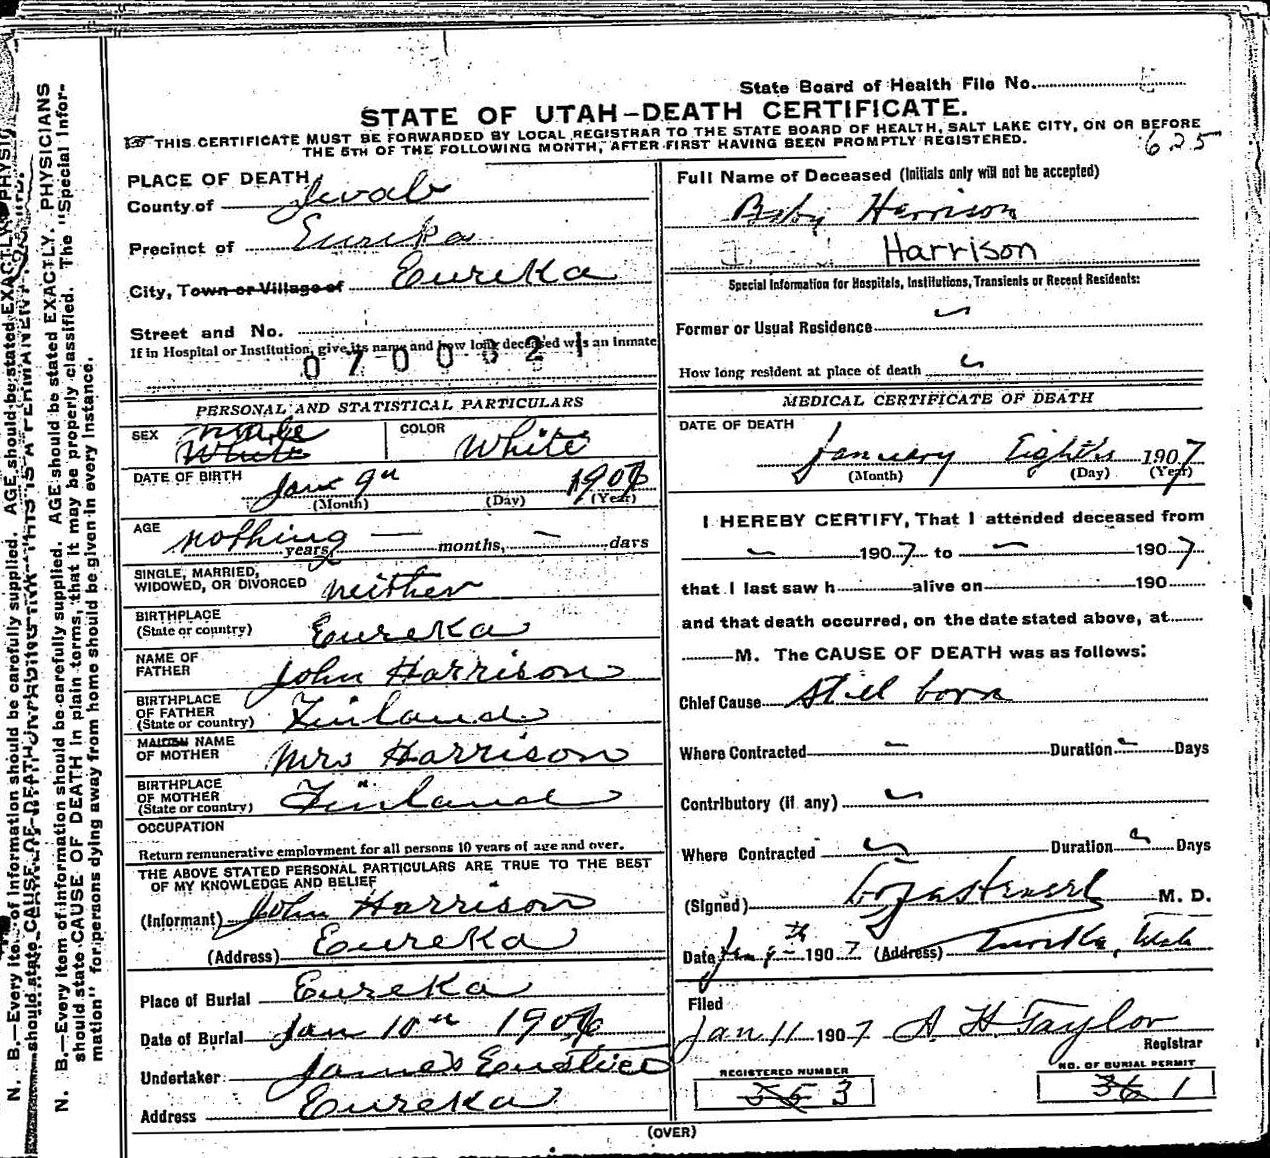 State Board of Health File No.
STATE OF UTAH—DEATH CERTIFICATE.
THIS CERTIFICATE MUST BE FORWARDED BY LOCAL REGISTRAR TO THE STATE BOARD OF HEALTH, SALT LAKE CITY, ON OR BEFORE
THE 5TH OF THE FOLLOWING MONTH, AFTER FIRST HAVING BEEN PROMPTLY REGISTERED.
625
PLACE OF DEATH
County of Juab
Precinct of Eureka
City, Town or Village of Eureka
Street and No.
If in Hospital or Institution, give its name and how long deceased was an inmate
PERSONAL AND STATISTICAL PARTICULARS
SEX Male White
COLOR White
DATE OF BIRTH Jan 9th
(Month) (Day) (Year)
AGE nothing years, — months, — days
SINGLE, MARRIED,
WIDOWED, OR DIVORCED neither
BIRTHPLACE
(State or country) Eureka
NAME OF
FATHER John Harrison
BIRTHPLACE
OF FATHER
(State or country) Finland
MAIDEN NAME
OF MOTHER Mrs Harrison
BIRTHPLACE
OF MOTHER
(State or country) Finland
OCCUPATION
Return remunerative employment for all persons 10 years of age and over.
THE ABOVE STATED PERSONAL PARTICULARS ARE TRUE TO THE BEST
OF MY KNOWLEDGE AND BELIEF
(Informant) John Harrison
(Address) Eureka
Place of Burial Eureka
Date of Burial Jan 10th
Undertaker James
Address Eureka
Full Name of Deceased (Initials only will not be accepted)
Baby Harrison
Harrison
Special Information for Hospitals, Institutions, Transients or Recent Residents:
Former or Usual Residence
How long resident at place of death
MEDICAL CERTIFICATE OF DEATH
DATE OF DEATH
January Eighth 1907
(Month) (Day) (Year)
I HEREBY CERTIFY, That I attended deceased from
— 1907 to — 1907
that I last saw h alive on 190
and that death occurred, on the date stated above, at
M. The CAUSE OF DEATH was as follows:
Chief Cause Still born
Where Contracted — Duration — Days
Contributory (if any)
Where Contracted Duration Days
(Signed) M. D.
Date 1907 (Address) Eureka, Utah
Filed
Jan 11 1907 A H Taylor
Registrar
REGISTERED NUMBER
3
NO. OF BURIAL PERMIT
1
(OVER)
N. B.—Every item of information should be carefully supplied. AGE should be stated EXACTLY. PHYSICIANS
should state CAUSE OF DEATH in plain terms, that it may be properly classified. The "Special Infor-
mation" for persons dying away from home should be given in every instance.